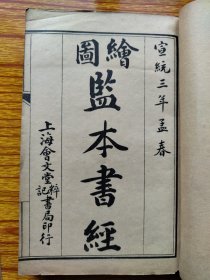 宣統三年孟春
繪圖
監本書經
上海會文堂粹記書局印行